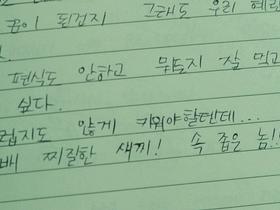 꿈이 된건지 그래도 우리 혜린
편식도 안하고 뭐든지 잘 먹고
싶다.
럽지도 않게 키워야할텐데...
배 찌질한 새끼! 속 좁은 놈!!